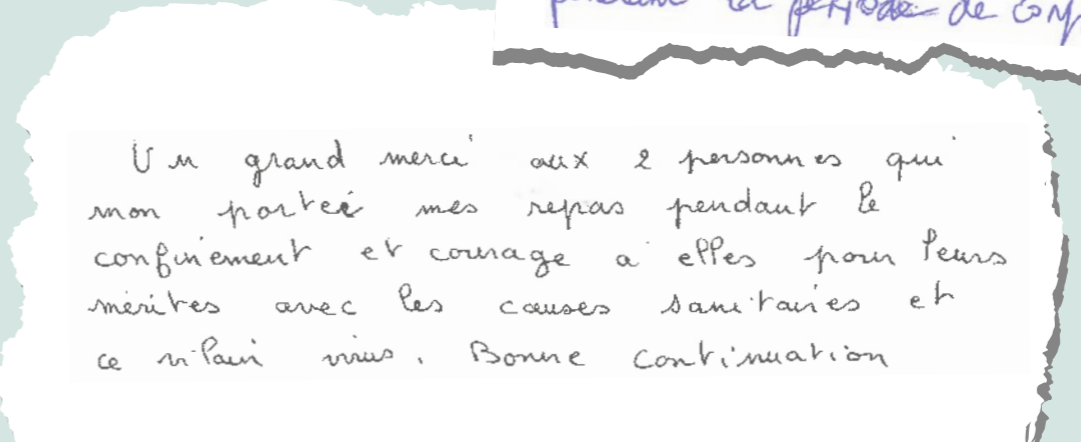 la période de
Un grand merci aux 2 personnes qui
mon porteé mes repas pendant le
confinement et courage a elles pour leurs
mérites avec les causes sanitaires et
ce vilain virus. Bonne continuation